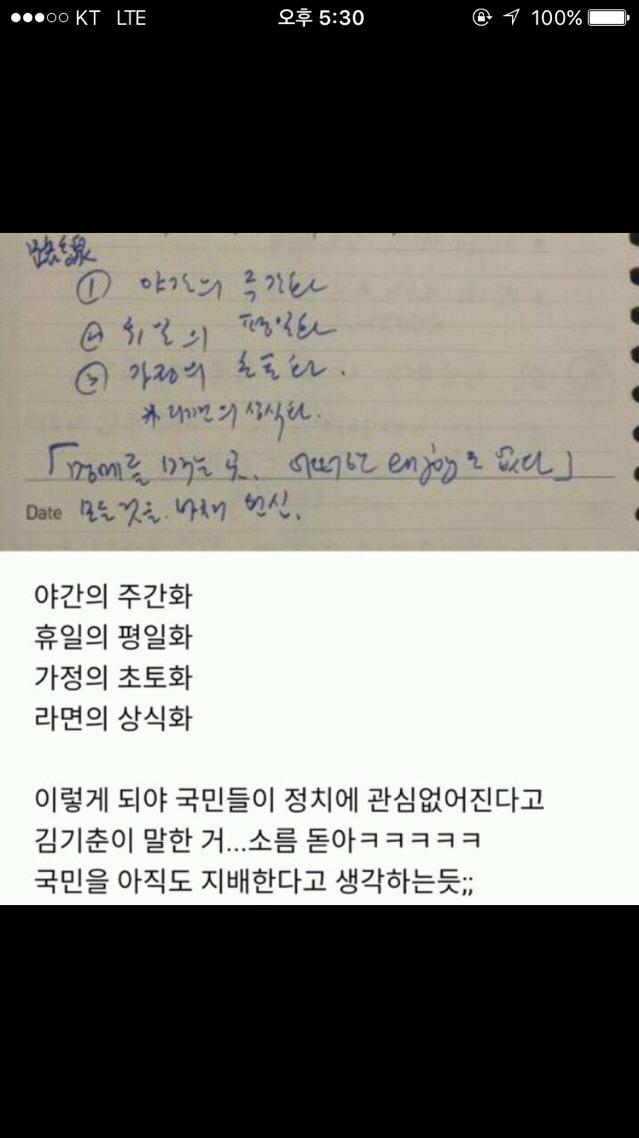 KT LTE 오후 5:30 100%
路線
① 야간의 주간화
② 휴일의 평일화
③ 가정의 초토화.
* 라면의 상식화.
「명예를 먹는 곳, 어떠한 enjoy도 없다」
Date 모든 것을 바쳐 헌신.
야간의 주간화
휴일의 평일화
가정의 초토화
라면의 상식화
이렇게 되야 국민들이 정치에 관심없어진다고
김기춘이 말한 거...소름 돋아ㅋㅋㅋㅋㅋ
국민을 아직도 지배한다고 생각하는듯;;